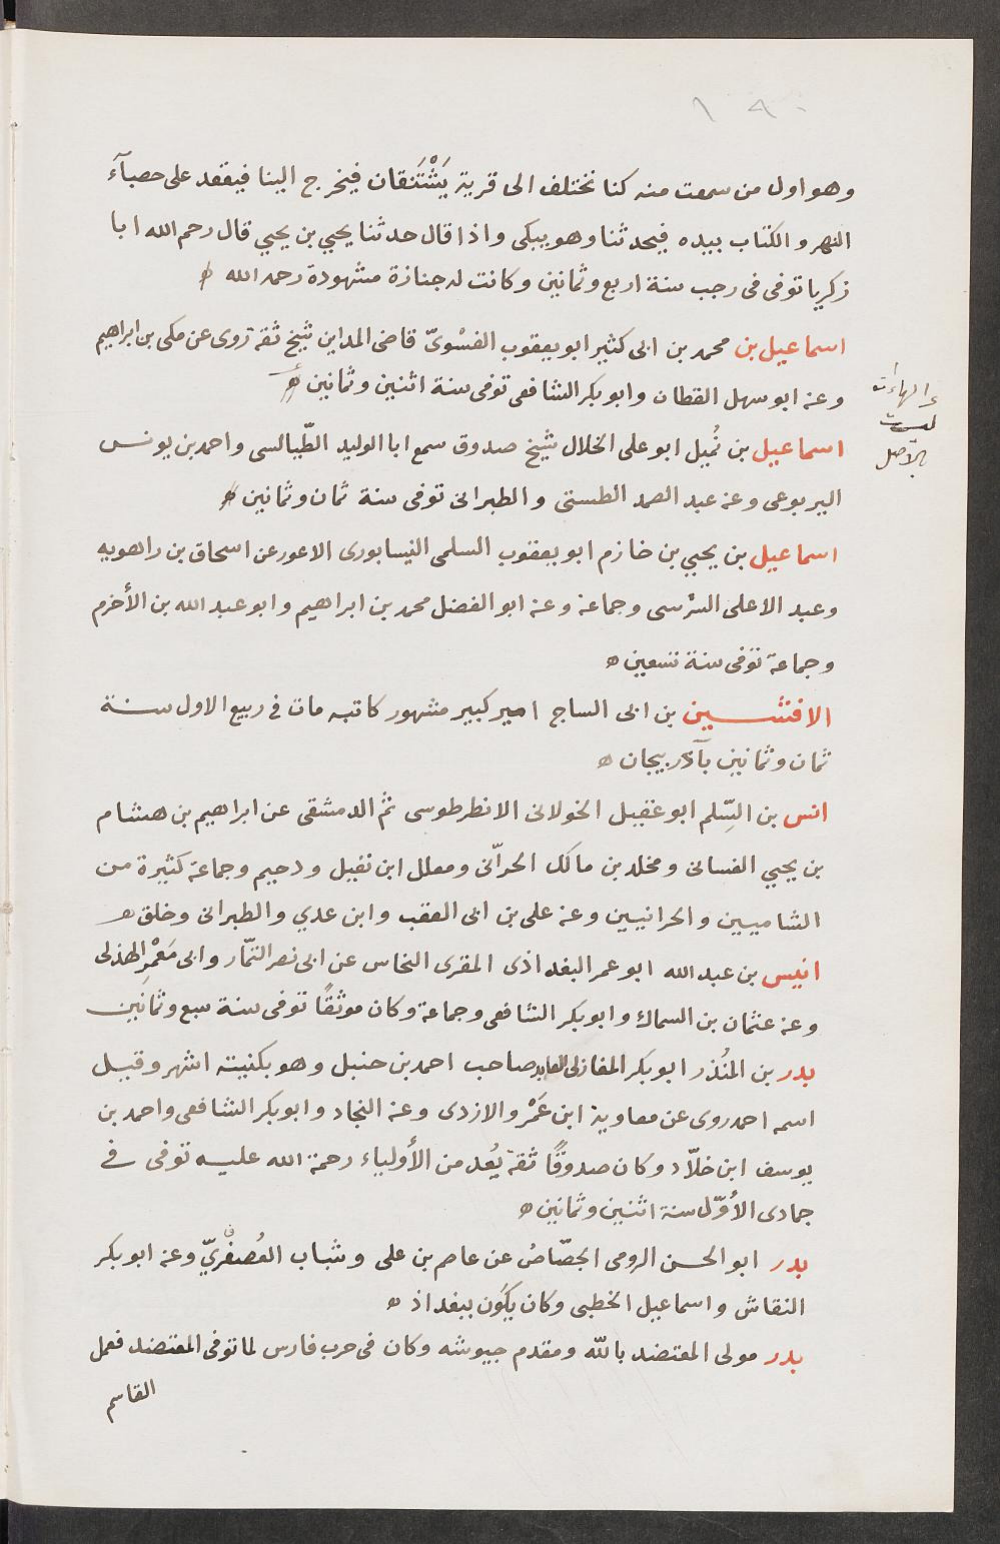 ١٨٠
وهو اول من سمعت منه كنا نختلف الى قرية يَشْتَنقان فيخرج الينا فيقعد على حصبآء
النهر و الكتاب بيده فيحدثنا وهو يبكى و اذا قال حدثنا يحيي بن يحيي قال رحم الله ابا
زكريا توفى فى رجب سنة اربع وثمانين و كانت له جنازة مشهودة رحمه الله ه
اسماعيل بن محمد بن ابى كثير ابو يعقوب الفسْوىّ قاضى المداين شيخ ثقة روى عن مكى بن ابراهيم
وعنه ابو سهل القطان و ابو بكر الشافعى توفى سنة اثنين وثمانين ه
الهاءات
ليست
بالأصل
اسماعيل بن نُميل ابو على الخلال شيخ صدوق سمع ابا الوليد الطّيالسى و احمد بن يونس
اليربوعى وعنه عبد الصمد الطستى و الطبرانى توفى سنة ثمان وثمانين ه
اسماعيل بن يحيي بن خازم ابو يعقوب السلمى النيسابورى الاعور عن اسحاق بن راهويه
وعبد الاعلى النرسى وجماعة وعنه ابو الفضل محمد بن ابراهيم و ابو عبد الله بن الأخرم
وجماعة توفى سنة تسعين ه
الافشين بن ابى الساج امير كبير مشهور كاتبه مات فى ربيع الاول سنة
ثمان وثمانين بآذربيجان ه
انس بن السِّلم ابو عقيل الخولانى الانطرطوسى ثم الدمشقى عن ابراهيم بن هشام
بن يحيي الغسانى ومخلد بن مالك الحرّانى ومعلل ابن نفيل ودحيم وجماعة كثيرة من
الشاميين و الحرانيين وعنه على بن ابى العقب و ابن عدي و الطبرانى وخلق ه
انيس بن عبد الله ابو عمر البغداذى المقرى النخاس عن ابى نصر التمّار و ابى مَعْمر الهذلى
وعنه عثمان بن السماك و ابو بكر الشافعى وجماعة وكان موثقًا توفى سنة سبع وثمانين
بدر بن المنُذر ابو بكر المغازلى العابد صاحب احمد بن حنبل وهو بكنيته اشهر وقيل
اسمه احمد روى عن معاوية ابن عَمْرو الازدى وعنه النجاد و ابو بكر الشافعى واحمد بن
يوسف ابن خلاّد وكان صدوقًا ثقة يُعد من الأولياء رحمة الله عليه توفى فى
جمادى الأوّل سنة اثنين وثمانين ه
بدر ابو الحسن الرومى الجصّاص عن عاصم بن على وشباب العُصفْريّ وعنه ابو بكر
النقاش و اسماعيل الخطبى وكان يكون ببغداذ ه
بدر مولى المعتضد بالله ومقدم جيوشه وكان فى حرب فارس لما توفى المعتضد فعمل
القاسم